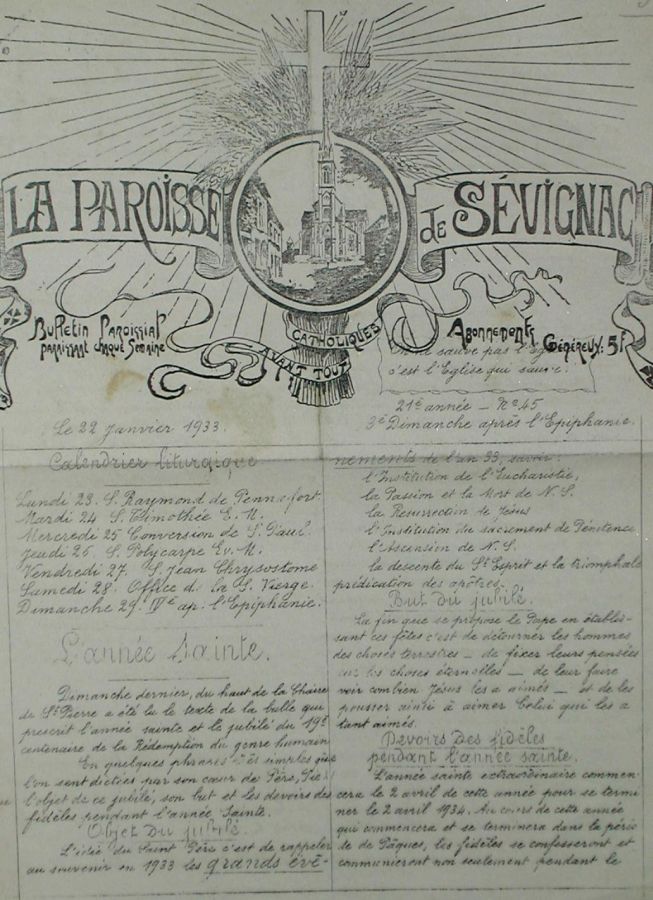 LA PAROISSE de SÉVIGNAC
Bulletin Paroissial
paraissant chaque Semaine
CATHOLIQUES
AVANT TOUT
Abonnements
Généreux. 5f
On ne sauve pas l'Eglise
c'est l'Eglise qui sauve.
Le 22 Janvier 1933.
21e année - No 45
3e Dimanche après l'Epiphanie.
Calendrier liturgique
Lundi 23. S. Raymond de Pennafort
Mardi 24 S. Timothée E. M.
Mercredi 25 Conversion de S. Paul.
Jeudi 26. S. Polycarpe Ev. M.
Vendredi 27. S. Jean Chrysostome
Samedi 28. Office de la S. Vierge.
Dimanche 29. IVe ap. l'Epiphanie.
L'année Sainte.
Dimanche dernier, du haut de la Chaire
de St Pierre a été lu le texte de la bulle qui
prescrit l'année sainte et le jubilé du 19e
centenaire de la Rédemption du genre humain
En quelques phrases simples que
l'on sent dictées par son cœur de Père,
l'objet de ce jubilé, son but et les devoirs des
fidèles pendant l'année Sainte.
Objet du jubilé.
L'idée du Saint Père c'est de rappeler
au souvenir en 1933 les grands évè-
nements de l'an 33, savoir:
l'Institution de l'Eucharistie,
la Passion et la Mort de N. S.
la Resurrection de Jésus
l'Institution du sacrement de Pénitence
l'Ascension de N. S.
la descente du St Esprit et la triomphale
prédication des apôtres.
But du jubilé.
La fin que se propose le Pape en établis-
sant ces fêtes c'est de détourner les hommes
des choses terrestres - de fixer leurs pensées
sur les choses éternelles - de leur faire
voir combien Jésus les a aimés - et de les
pousser ainsi à aimer Celui qui les a
tant aimés.
Devoirs des fidèles
pendant l'année sainte.
L'année sainte extraordinaire commen-
cera le 2 avril de cette année pour se termi
ner le 2 avril 1934. Au cours de cette année
qui commencera et se terminera dans la pério
de de Pâques, les fidèles se confesseront et
communieront non seulement pendant le